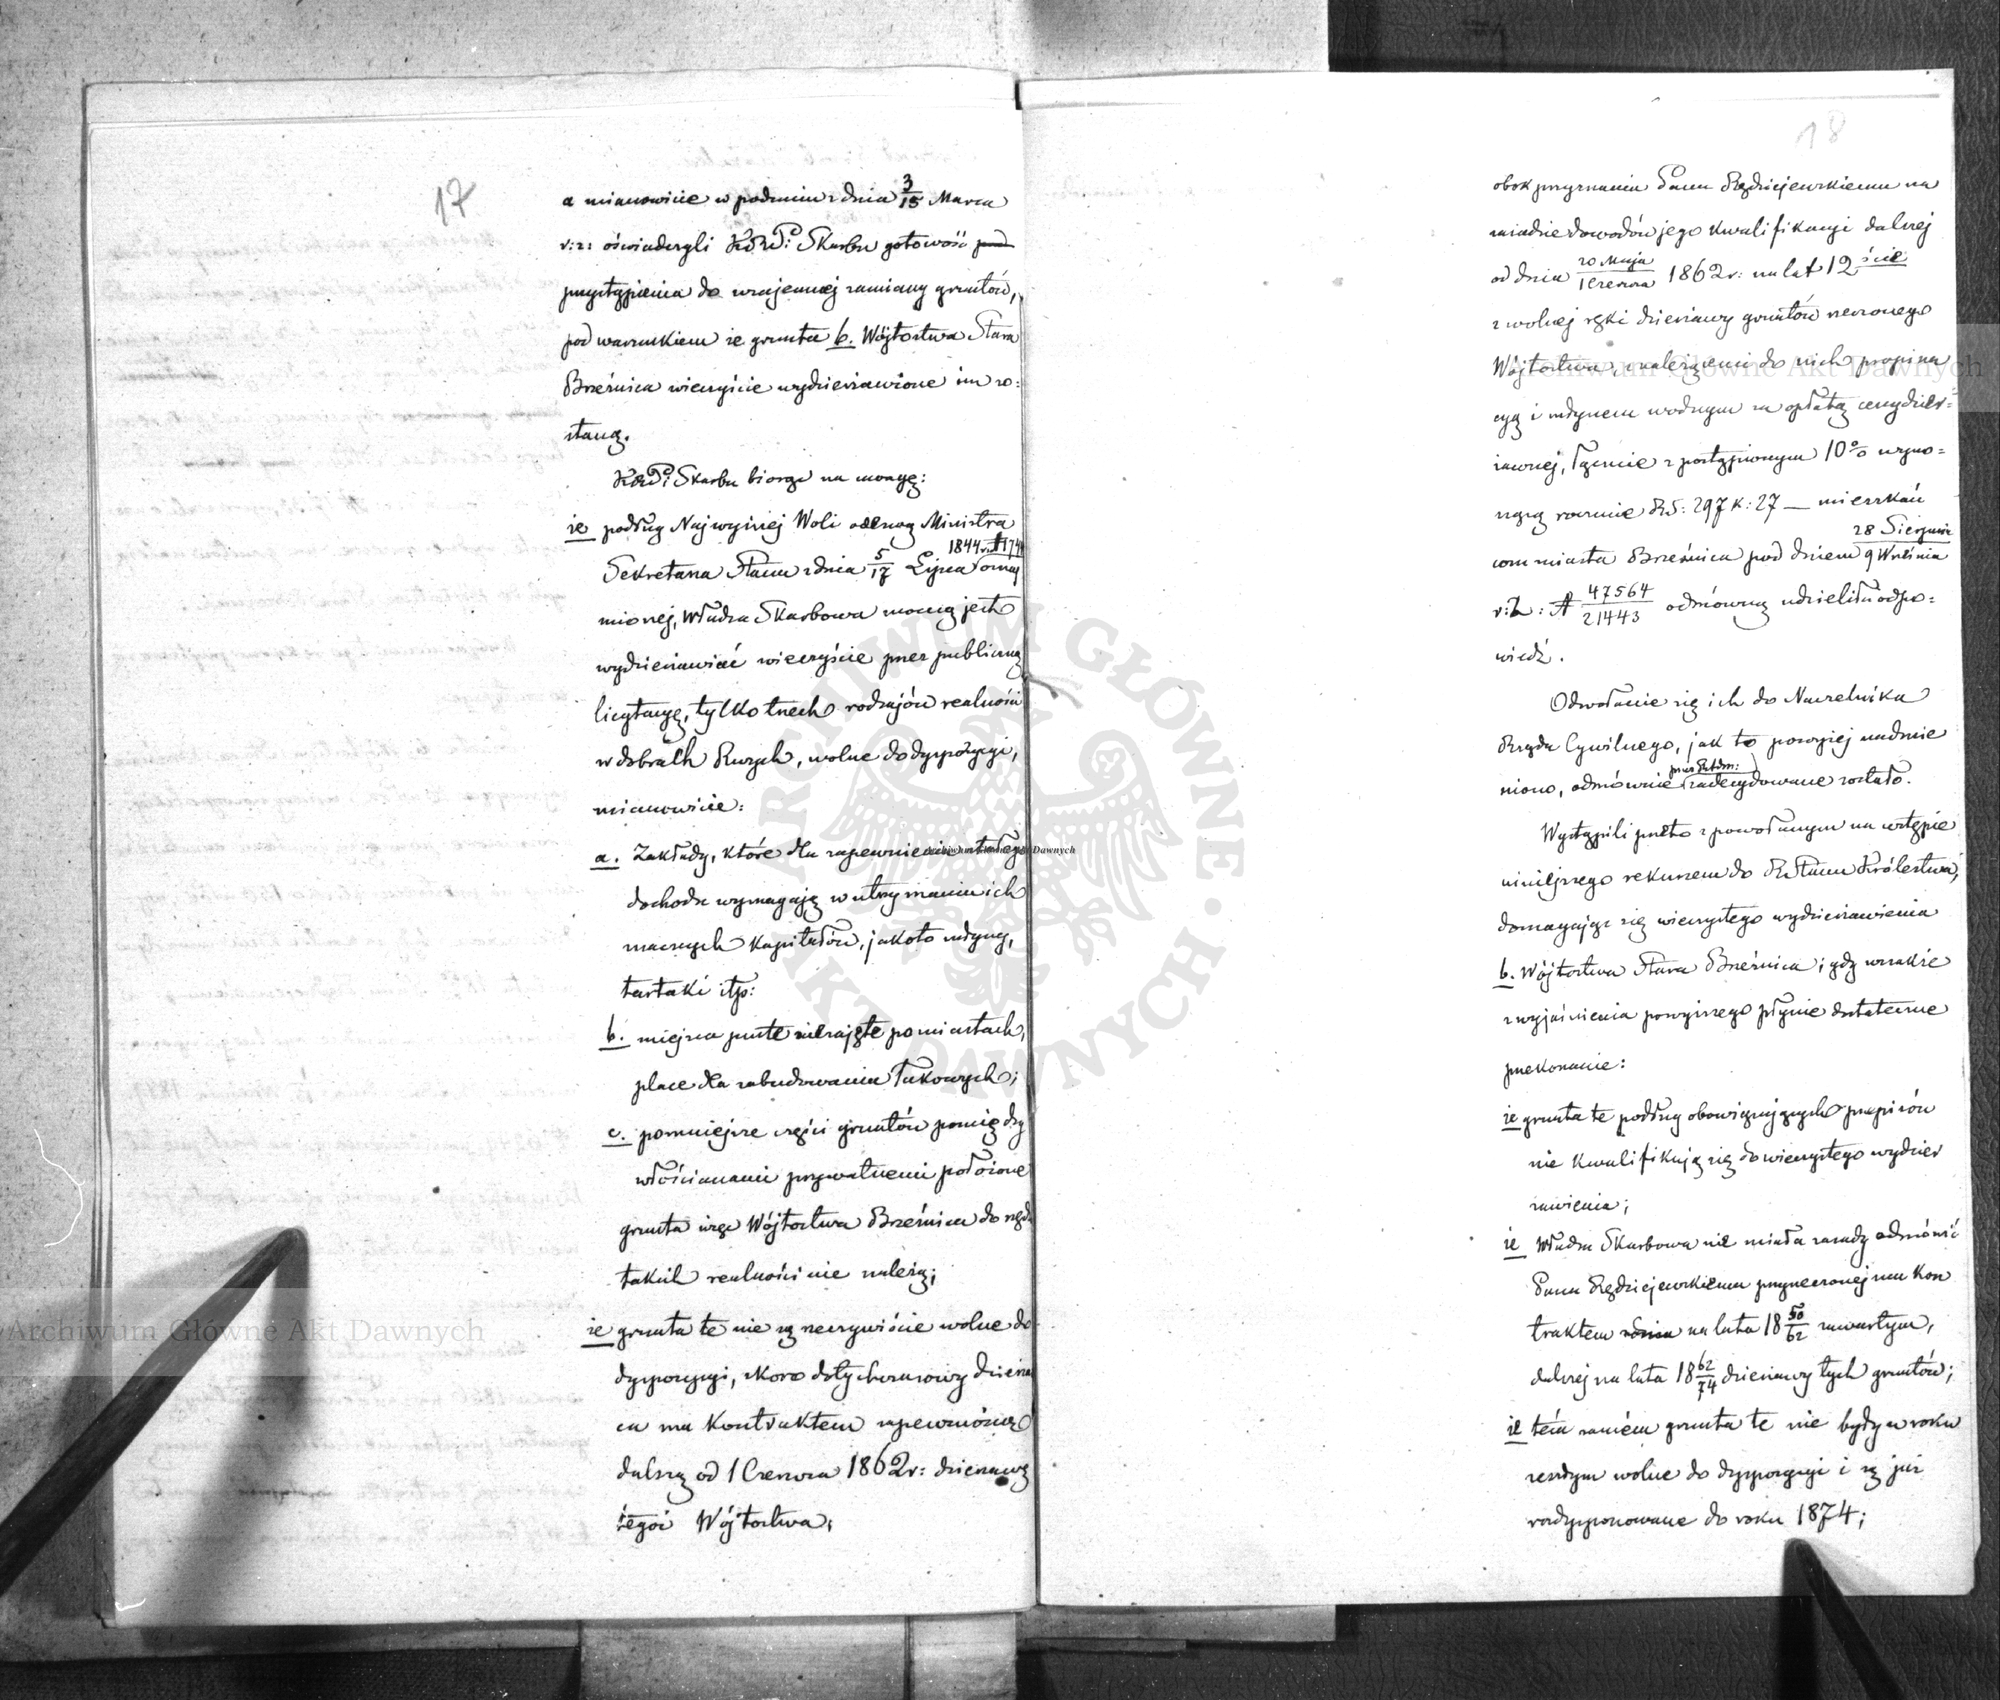 17
a mianowicie w podaniu z dnia 3/15 Marca
r: z: oświadczyli KRzP: Skarbu gotowość
przystąpienia do wzajemnej zamiany gruntów,
pod warunkiem że grunta b. Wójtostwa Stara
Brzeźnica wieczyście wydzierżawione im zo=
staną.
KRzP: Skarbu biorąc na uwagę:
że podług Najwyższej Woli odezwą Ministra
Sekretarza Stanu z dnia 5/17 Lipca 1844 r. oznaj
mionej, Władza Skarbowa mocną jest
wydzierżawiać wieczyście przez publiczną
licytacyę, tylko trzech rodzajów realności
w dobrach Rwych, wolne do dyspozycyi,
mianowicie:
a. Zakłady, które dla zapewnienia stałego
dochodu wymagają w utrzymaniu ich
znacznych kapitałów, jakoto młyny,
tartaki itp:
b. miejsca puste niezajęte po miastach,
place dla zabudowania takowych;
c. pomniejsze części gruntów pomiędzy
włościanami prywatnemi położone
grunta więc Wójtostwa Brzeźnica do rzędu
takich realności nie należą;
że grunta te nie są rzeczywiście wolne do
dyspozycyi, skoro dotychczasowy dzierża
ca ma kontraktem zapewnioną
dalszą od 1 Czerwca 1862 r: dzierżawę
tegoż Wójtostwa;
18
obok przyznania Panu Rędziejewskiemu na
zasadzie dowodów jego kwalifikacyi dalszej
od dnia 20 Maja/1 Czerwca 1862 r: na lat 12 ście
z wolnej ręki dzierżawy gruntów rzeczonego
Wójtostwa, z należącemi do nich propina
cyą i młynem wodnym za opłatą ceny dzier=
żawnej, łącznie z postąpionym 10 % wyno=
szącą rocznie RS: 297 k: 27 — mieszkań
com miasta Brzeźnica pod dniem 28 Sierpnia/9 Września
r: z: N 47564/21443 odmówną udzieliła odpo=
wiedź.
Odwołanie się ich do Naczelnika
Rządu Cywilnego, jak to powyżej nadmie
niono, odmownie przez RAdm: zadecydowane zostało.
Wystąpili przeto z powołanym na wstępie
niniejszego rekursem do RStanu Królestwa,
domagając się wieczystego wydzierżawienia
b. Wójtostwa Stara Brzeźnica; gdy wszakże
z wyjaśnienia powyższego płynie dostateczne
przekonanie:
że grunta te podług obowiązujących przepisów
nie kwalifikują się do wieczystego wydzier
żawienia;
że Władza Skarbowa nie miała zasady odmówić
Panu Rędziejewskiemu przyrzeczonej mu kon
traktem na lata 18 50/62 zawartym,
dalszej na lata 18 62/74 dzierżawy tych gruntów;
że tém samém grunta te nie były w roku
zeszłym wolne do dyspozycyi i są już
rozdysponowane do roku 1874;
Archiwum Główne Akt Dawnych
Archiwum Główne Akt Dawnych
Archiwum Główne Akt Dawnych
ARCHIWUM GŁÓWNE AKT DAWNYCH